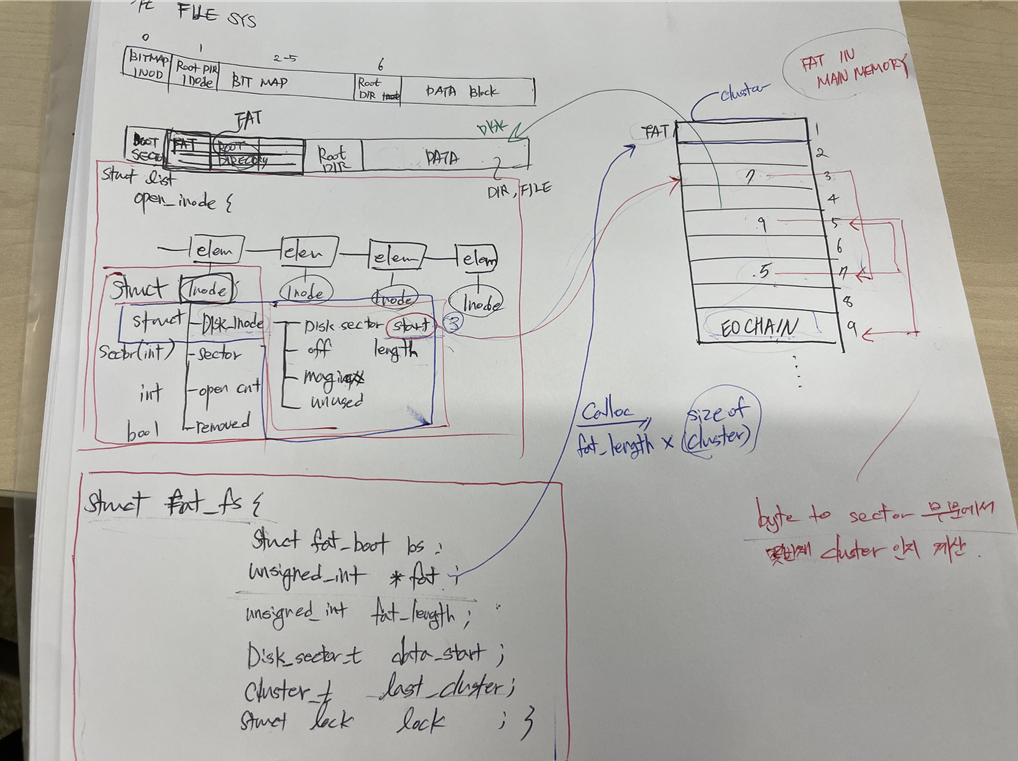 FILE SYS
0
1
2-5
6
BITMAP
INOD
Root DIR
Inode
BIT MAP
Root
DIR
DATA Block
FAT
BOOT
SECTOR
FAT
ROOT
DIRECTORY
Root
DIR
DATA
DISK
DIR, FILE
struct list
open_inode {
elem
elem
elem
elem
Struct Inode {
Inode
Inode
Inode
struct Disk_Inode
Sector(int) sector
int open cnt
bool removed
Disk sector start 3
length
off
magic
unused
FAT IN
MAIN MEMORY
cluster
FAT
1
2
7 3
4
9 5
6
5 7
8
EOCHAIN 9
Calloc
fat_length × (size of
cluster)
byte to sector 부분에서
몇번째 cluster 인지 계산.
struct fat_fs {
struct fat_boot bs ;
unsigned_int *fat ;
unsigned_int fat_length ;
Disk_sector_t data_start ;
Cluster_t last_cluster ;
struct lock lock ; }